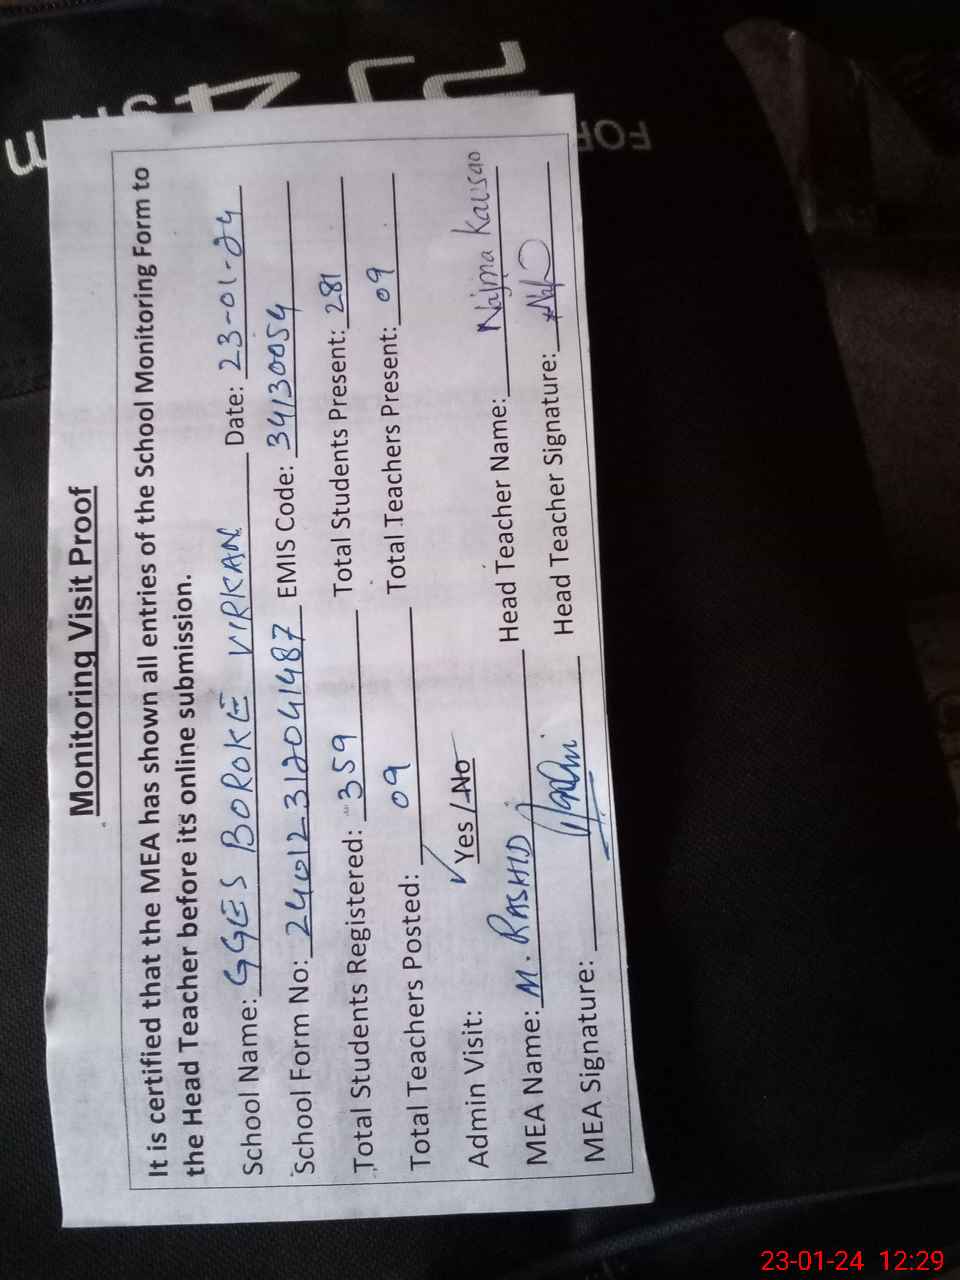 Monitoring Visit Proof
It is certified that the MEA has shown all entries of the School Monitoring Form to
the Head Teacher before its online submission.
School Name: GGES BOROKE VIRKAN Date: 23-01-24
School Form No: 24012312041487 EMIS Code: 34130054
Total Students Registered: 359 Total Students Present: 281
Total Teachers Posted: 09 Total Teachers Present: 09
Admin Visit: Yes / No
MEA Name: M. RASHID Head Teacher Name: Najma Kausar
MEA Signature: Head Teacher Signature:
FOR
23-01-24 12:29